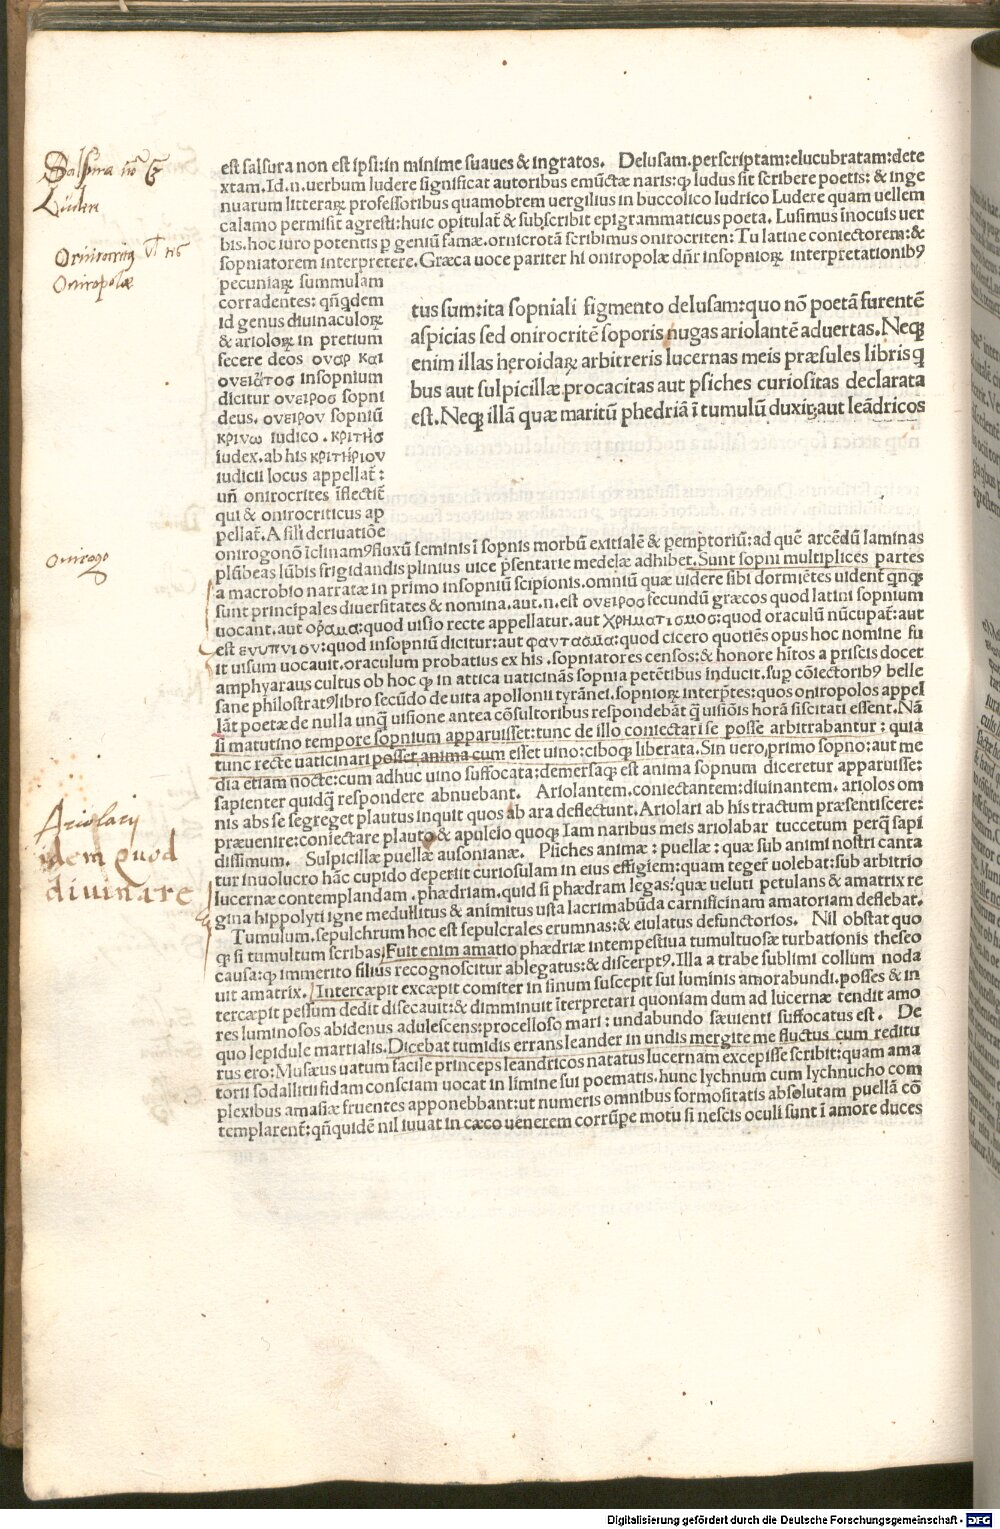 est salsura non est ipsi:in minime suaues & ingratos. Delusam.perscriptam:elucubratam:dete
xtam.Id.n.uerbum ludere significat autoribus emūctæ naris:ꝙ ludus sit scribere poetis: & inge
nuarum litteraꝝ professoribus quamobrem uergilius in buccolico ludrico Ludere quam uellem
calamo permisit agresti:huic opitulat̄ & subscribit epigrammaticus poeta. Lusimus īnocuis uer
bis.hoc iuro potentis ꝑ geniū famæ.ornicrotā scribimus onirocriten: Tu latine coniectorem:&
sopniatorem interpretere.Græca uoce pariter hi oniropolæ dn̄r insopnioꝝ interpretationibꝰ
pecuniaꝝ summulam
corradentes: qn̄qdem
id genus diuinaculoꝝ
& arioloꝝ in pretium
fecere deos οναρ και
ονειατος insopnium
dicitur ονειρος sopni
deus. ονειρον sopniū
κρινω iudico . κριτης
iudex.ab his κριτηριον
iudicii locus appellat̄:
un̄ onirocrites īflectit̄
qui & onirocriticus ap
pellat̄. A sili deriuatiōe
tus sum:ita sopniali figmento delusam:quo nō poetā furentē
aspicias sed onirocritē soporis nugas ariolantē aduertas.Neqꝫ
enim illas heroidaꝝ arbitreris lucernas meis præsules libris q̄
bus aut sulpicillæ procacitas aut psiches curiositas declarata
est.Neqꝫ illā quæ maritū phedriā ī tumulū duxit;aut leādricos
onirogonō īclinamꝰfluxū seminis ī sopnis morbū exitialē & ꝑemptoriū:ad quē arcēdū laminas
plūbeas lūbis frigidandis plinius uice p̄sentarie medelæ adhibet.Sunt sopni multiplices partes
a macrobio narratæ in primo insopniū scipionis.omniū quæ uidere sibi dormiētes uident̄ qnqꝫ
sunt principales diuersitates & nomina.aut.n.est ονειρος secundū græcos quod latini sopnium
uocant.aut οραμα:quod uisio recte appellatur.aut χρηματισμος:quod oraculū nūcupat̄:aut
est ενυπνιον:quod insopniū dicitur:aut φαντασμα:quod cicero quotiēs opus hoc nomine fu
it uisum uocauit.oraculum probatius ex his .sopniatores censos:& honore hītos a priscis docet
amphyaraus cultus ob hoc ꝙ in attica uaticinās sopnia petētibus inducit.sup̄ cōiectoribꝰ belle
sane philostratꝰlibro secūdo de uita apollonii tyrānei.sopnioꝝ interp̄tes:quos oniropolos appel
lāt poetæ de nulla unq̄ uisione antea cōsultoribus respondebāt q̄ uisiōis horā siscitati essent.Nā
si matutino tempore sopnium apparuisset:tunc de illo coniectari se posse arbitrabantur : quia
tunc recte uaticinari posset anima cum esset uino:ciboqꝫ liberata.Sin uero,primo sopno:aut me
dia etiam nocte:cum adhuc uino suffocata:demersaqꝫ est anima sopnum diceretur apparuisse:
sapienter quidq̄ respondere abnuebant. Ariolantem.coniectantem:diuinantem. ariolos om
nis abs se segreget plautus inquit quos ab ara deflectunt.Ariolari ab his tractum præsentiscere:
præuenire:coniectare plauto & apuleio quoqꝫ Iam naribus meis ariolabar tuccetum perq̄ sapi
dissimum. Sulpicillæ puellæ ausonianæ. Psiches animæ : puellæ : quæ sub animi nostri canta
tur inuolucro hāc cupido deperiit curiosulam in eius effigiem:quam teger̄ uolebat:sub arbitrio
lucernæ contemplandam . phædriam.quid si phædram legas:quæ ueluti petulans & amatrix re
gina hippolyti igne medullitus & animitus usta lacrimabūda carnificinam amatoriam deflebat.
Tumulum.sepulchrum hoc est sepulcrales erumnas:& eiulatus defunctorios. Nil obstat quo
ꝙ si tumultum scribas.Fuit enim amatio phædriæ intempestiua tumultuosæ turbationis theseo
causa:ꝙ immerito filius recognoscitur ablegatus:& discerptꝰ.Illa a trabe sublimi collum noda
uit amatrix. Intercæpit excæpit comiter in sinum suscepit sui luminis amorabundi.posses & in
tercæpit pessum dedit disecauit:& dimminuit īterpretari quoniam dum ad lucernæ tendit amo
res luminosos abidenus adulescens:procelloso mari : undabundo sæuienti suffocatus est. De
quo lepidule martialis.Dicebat tumidis errans leander in undis mergite me fluctus cum reditu
rus ero: Musæus uatum facile princeps leandricos natatus lucernam excepisse scribit:quam ama
torii sodallitii fidam consciam uocat in limine sui poematis.hunc lychnum cum lychnucho com
plexibus amasiæ fruentes apponebbant:ut numeris omnibus formositatis absolutam puellā cō
templarent̄:qn̄quidē nil iuuat in cæco uenerem corrūpe motu si nescis oculi sunt ī amore duces
Ludere
Oniropolæ
Onirogo
Ariolarij
idem quod
divinare
Digitalisierung gefördert durch die Deutsche Forschungsgemeinschaft - DFG